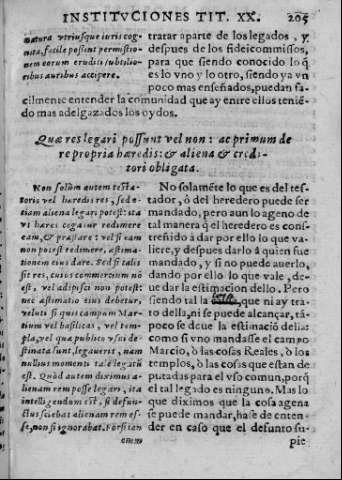 INSTITVCIONES TIT. XX. 205
natura vtriusque iuris cog-
nita, facile possint permistio-
nem eorum eruditi subtilio-
ribus auribus accipere.
tratar aparte de los legados, y
despues de los fideicommissos,
para que siendo conocido lo q̃
es lo vno y lo otro, siendo ya vn
poco mas enseñados, puedan fa-
cilmente entender la comunidad que ay entre ellos tenié-
do mas adelgazados los oydos.
Quæ res legari possunt vel non: ac primum de
re propria hæredis: & aliena & credi-
tori obligata.
Non solùm autem testa-
toris vel hæredis res, sed e-
tiam aliena legari potest: ita
vt hæres cogatur redimere
eam, & præstare: vel si eam
non potest redimere, æstima-
tionem eius dare. Sed si talis
sit res, cuius commercium nō
est, vel adipisci non potest:
nec æstimatio eius debetur,
veluti si quis campum Mar-
tium vel basilicas, vel tem-
pla, vel quæ publico vsui de-
stinata sunt, legauerit, nam
nullius momenti tale legatũ
est. Quòd autem diximus a-
lienam rem posse legari, ita
intelligendum est, si defun-
ctus sciebat alienam rem es-
se, non si ignorabat. Forsitan
enim
No solaméte lo que es del tes-
tador, ò del heredero puede ser
mandado, pero aun lo ageno de
tal manera q̃ el heredero es cons-
treñido à dar por ello lo que va-
liere, y despues darlo à quien fue
mandado, y si no puede auerlo,
dando por ello lo que vale, de-
ue dar la estimacion dello. Pero
siendo tal la que ni ay tra-
to della, ni se puede alcançar, tá-
poco se dcue la estimació della:
como si vno mandasse el campo
Marcio, ò las cosas Reales, ò los
templos, ò las cosas que estan de
putadas para el vso comun, porq̃
el tal legado es ninguno. Mas lo
que diximos que la cosa agena
se puede mandar, hase de enten-
der en caso que el defunto su-
pie